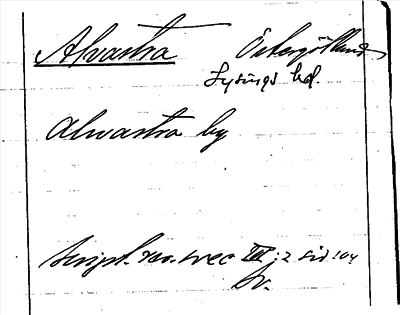 Alvastra Östergötland
Lysings hd.
Alwastra by
Script. rer. svec III; 2 sid. 104
Sv.